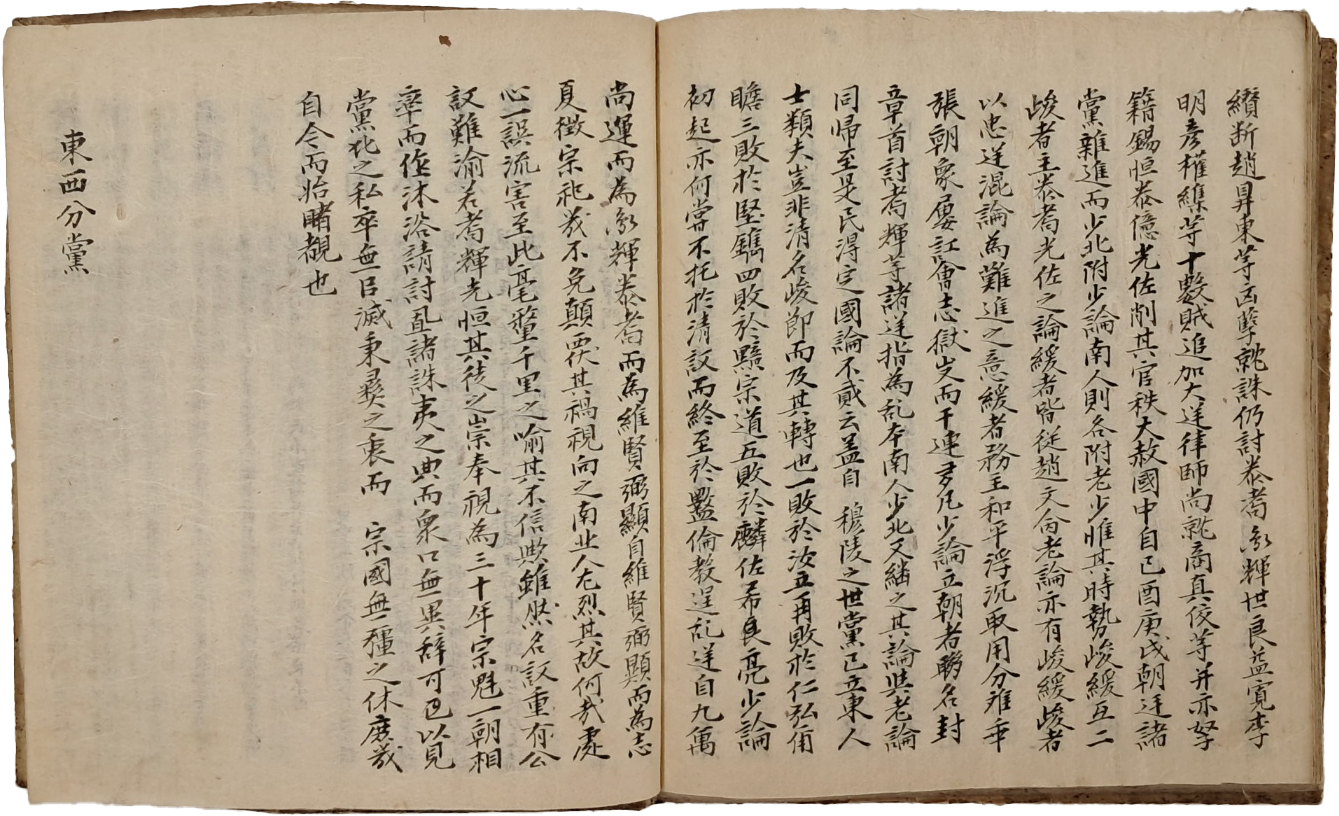 纘新趙昇東等凶孽就誅仍討泰耇鳳輝世良益寬李
明彥權緤等十數賊追加大逆律師尚就商真儉等并亦孥
籍錫恒泰億光佐削其官秩大赦國中自己酉庚戌朝廷諸
黨雜進而少北附少論南人則各附老少惟其時勢峻緩互二
峻者主泰耇光佐之論緩者皆從趙文命老論亦有峻緩峻者
以忠逆混論為難進之意緩者務主和平浮沉取用分難乖
張朝象屢訌會志獄上而干連多凡少論立朝者聯名封
章首討耇輝等諸逆指為乱本南人少北又繙之其論與老論
同帰至是民得定國論不貳云盖自 穆陵之世黨已立東人
士類夫豈非清名峻節而及其轉也一敗於汝立再敗於仁弘
瞻三敗於堅鑴四敗於黯宗道五敗於麟佐希良亮少論
初起亦何嘗不托於清議而終至於斁倫教逞乱逆自九萬
尚運而為鳳輝泰耇而為維賢弼顯自維賢弼顯而為志
夏徵宗祀幾不免顛覆其禍視向之南北人尤烈其故何哉處
心一誤流害至此毫釐千里之喻其不信歟雖然名議重有公
議難渝若耇輝光恒其徒之崇奉視為三十年宗魁一朝相
率而作沐浴請討亟諸誅夷之典而衆口無異辞可也以見
黨私之私卒無一旨滅秉彛之衷而 宗國無疆之休庶幾
自今而始睹覩也
東西分黨